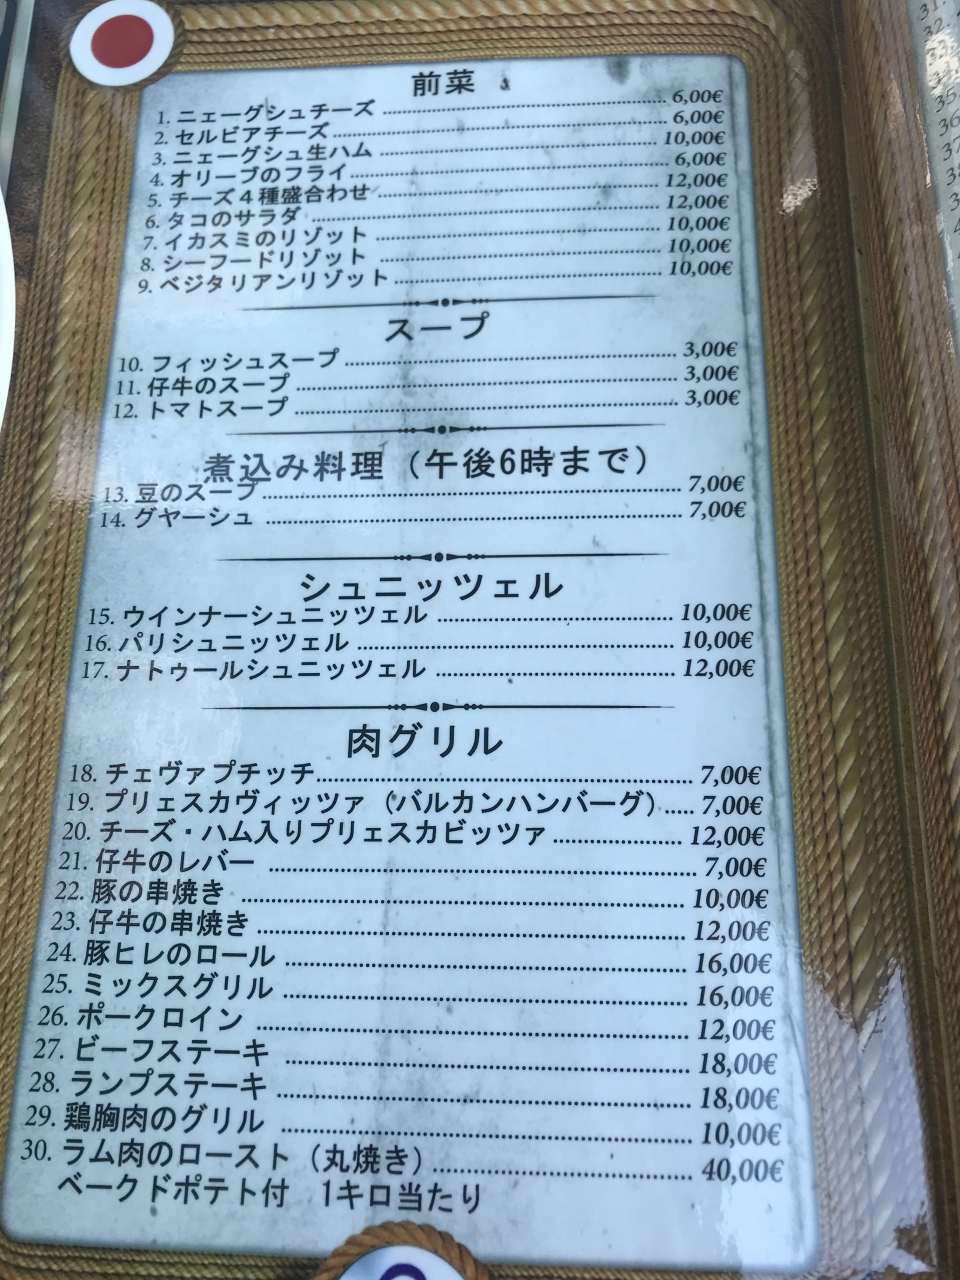 前菜
1. ニェーグシュチーズ 6,00€
2. セルビアチーズ 6,00€
3. ニェーグシュ生ハム 10,00€
4. オリーブのフライ 6,00€
5. チーズ4種盛合わせ 12,00€
6. タコのサラダ 12,00€
7. イカスミのリゾット 10,00€
8. シーフードリゾット 10,00€
9. ベジタリアンリゾット 10,00€
スープ
10. フィッシュスープ 3,00€
11. 仔牛のスープ 3,00€
12. トマトスープ 3,00€
煮込み料理（午後6時まで）
13. 豆のスープ 7,00€
14. グヤーシュ 7,00€
シュニッツェル
15. ウインナーシュニッツェル 10,00€
16. パリシュニッツェル 10,00€
17. ナトゥールシュニッツェル 12,00€
肉グリル
18. チェヴァプチッチ 7,00€
19. プリェスカヴィッツァ（バルカンハンバーグ） 7,00€
20. チーズ・ハム入りプリェスカビッツァ 12,00€
21. 仔牛のレバー 7,00€
22. 豚の串焼き 10,00€
23. 仔牛の串焼き 12,00€
24. 豚ヒレのロール 16,00€
25. ミックスグリル 16,00€
26. ポークロイン 12,00€
27. ビーフステーキ 18,00€
28. ランプステーキ 18,00€
29. 鶏胸肉のグリル 10,00€
30. ラム肉のロースト（丸焼き） 40,00€
ベークドポテト付 1キロ当たり
31.
32.
35.
36
37